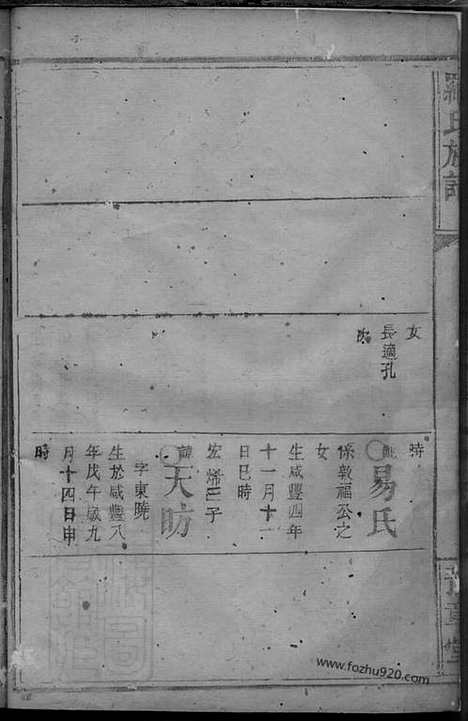 羅氏族譜
女
長適孔
次
時
配易氏
係敦福公之
女
生咸豐四年
十一月十二
日巳時
宏烯四子
諱天昉
字東曉
生於咸豐八
年戊午歲九
月十四日申
時
豫章堂
www.fozhu920.com